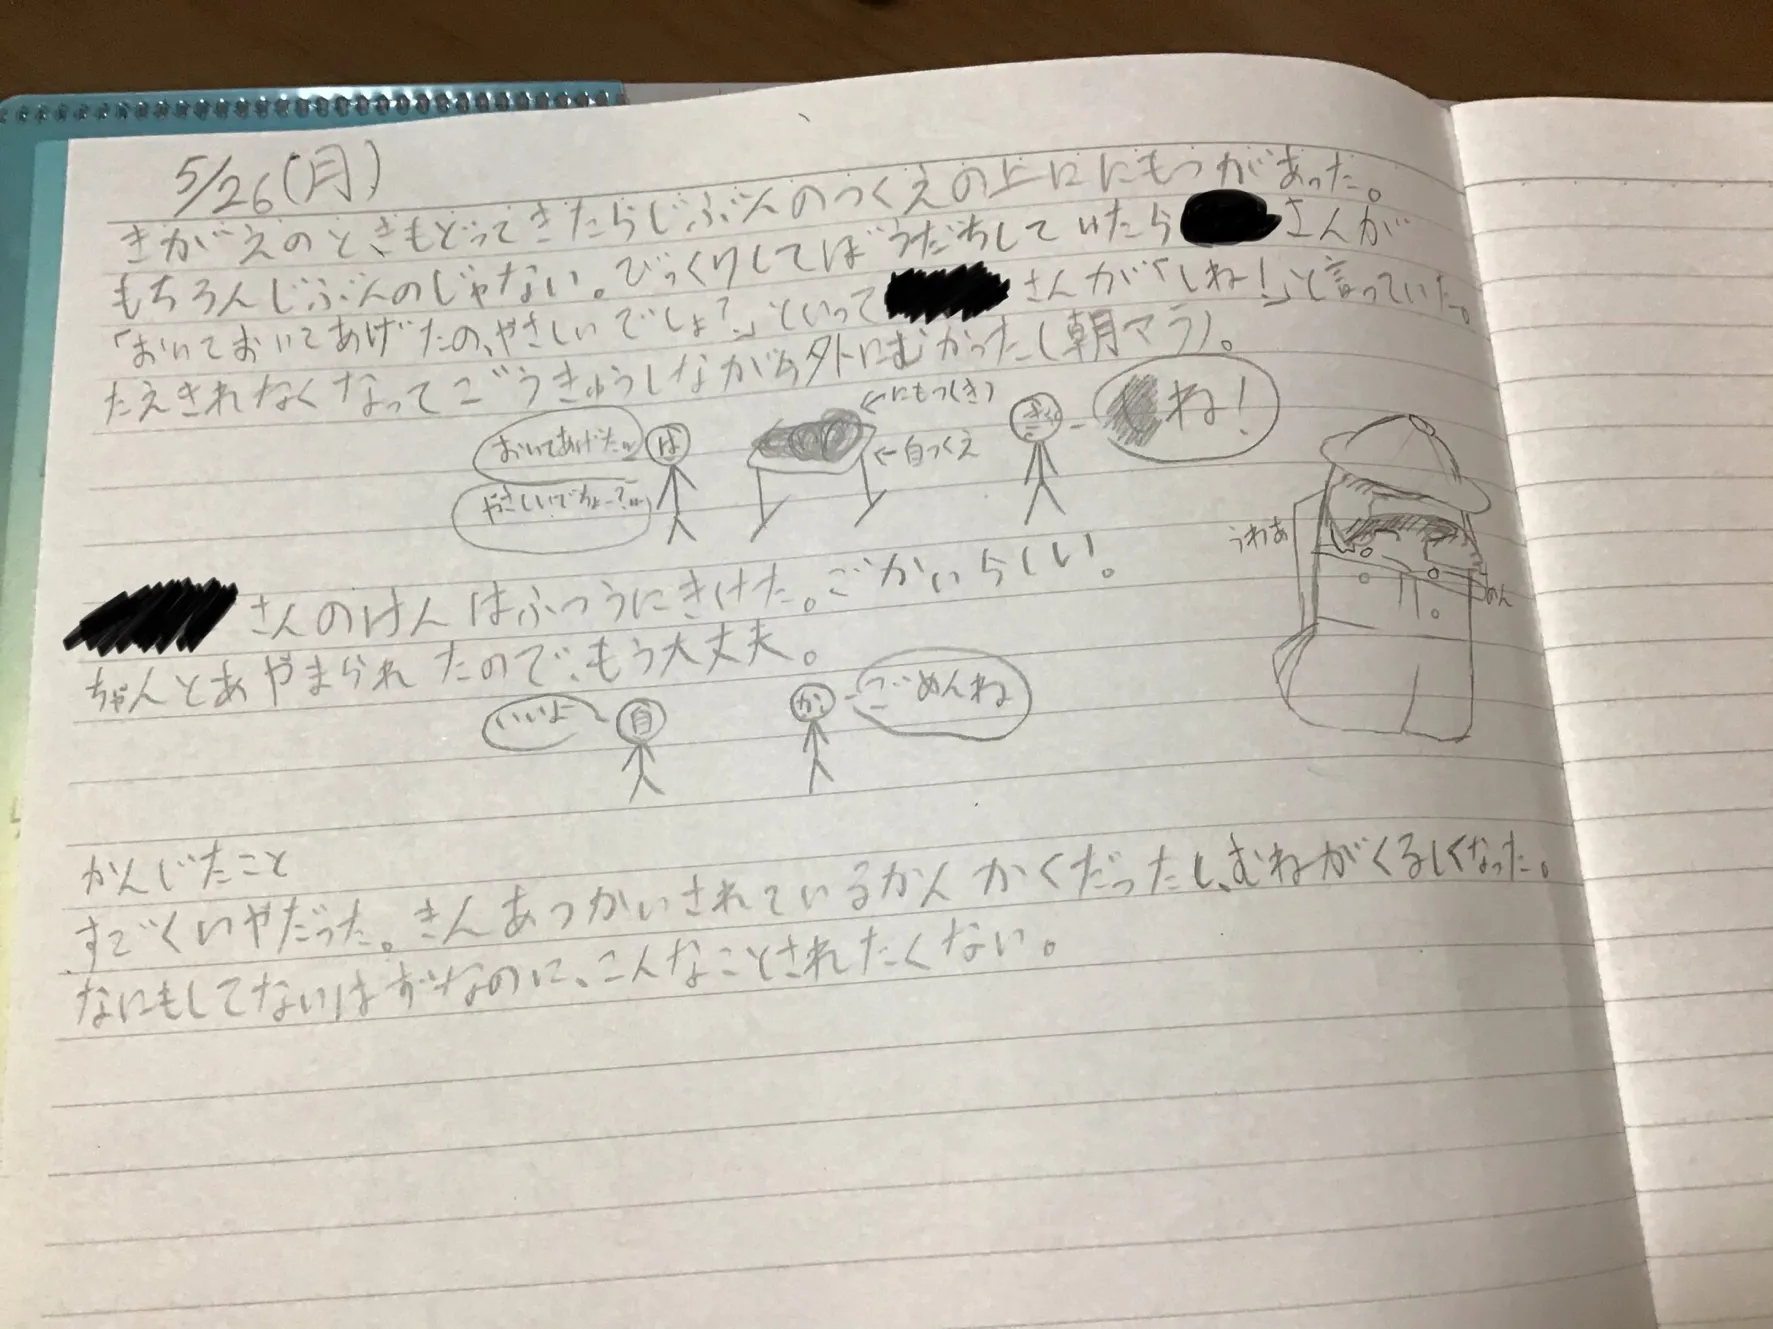 5/26(月)
きがえのときもどってきたらじぶんのつくえの上ににもつがあった。
もちろんじぶんのじゃない。びっくりしてぼうだちしていたら さんが
「おいておいてあげたの、やさしいでしょ?」といって さんが「しね!」と言っていた。
たえきれなくなってごうきゅうしながら外にむかった(朝マラ)。
おいてあげたの
やさしいでちょー?
は
←にもつ(き)
←自つくえ
ね!
うわあ
さんのけんはふつうにきけた。ごかいらしい!
ちゃんとあやまられたので、もう大丈夫。
いいよ
自
か
ごめんね
かんじたこと
すごくいやだった。きんあつかいされているかんかくだったし、むねがくるしくなった。
なにもしてないはずなのに、こんなことされたくない。